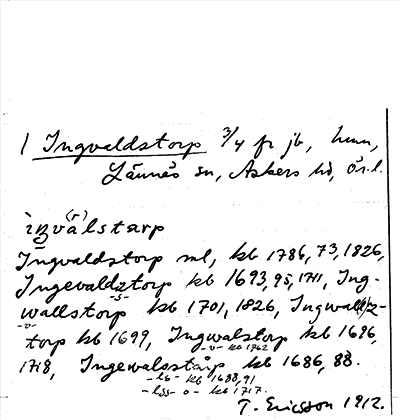 1 Ingvaldstorp 3/4 fr jb, hmn,
Lännäs sn, Askers hd, Ör.l.
ìŋvà(r)lstarp
Ingvaldstorp ml, kb 1786, 73, 1826,
Ingevaldztorp kb 1693, 95, 1711, Ing-
-s-
wallstorp kb 1701, 1826, Ingwallz-
-v-
torp kb 1699, Ingwalstorp kb 1696,
-v- kb 1762
1718, Ingewalsstårp kb 1686, 88.
-ls- kb 1688, 91
-lss- o- kb 1717.
T. Ericsson 1912.